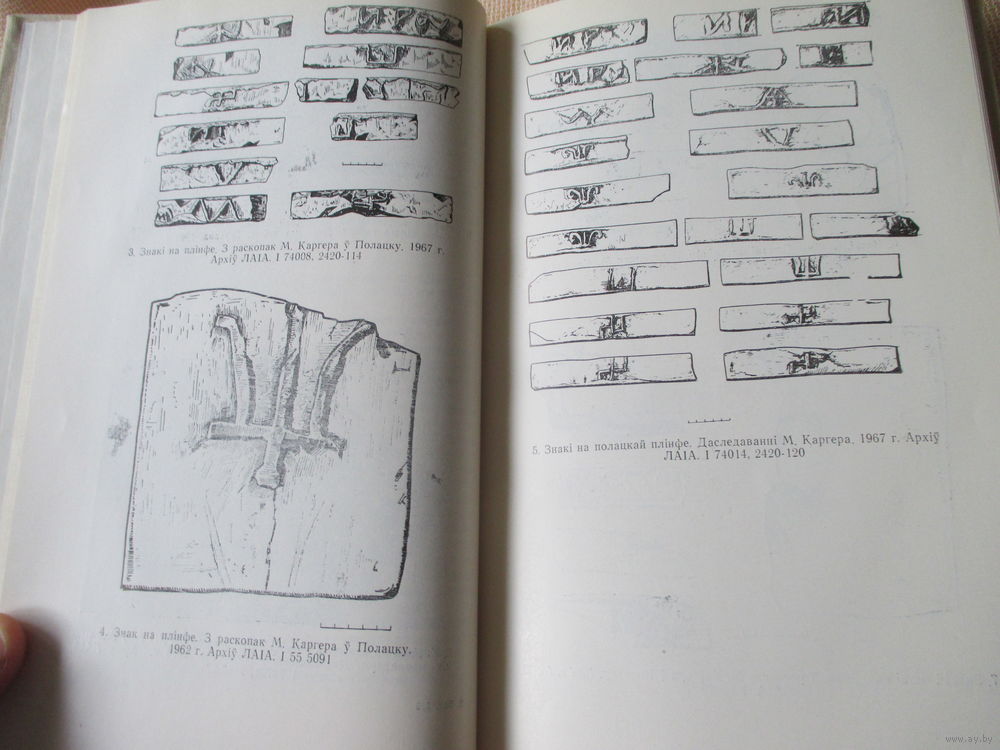 3. Знакі на плінфе. З раскопак М. Каргера ў Полацку. 1967 г.
Архіў ЛАІА. І 74008, 2420-114
4. Знак на плінфе. З раскопак М. Каргера ў Полацку.
1962 г. Архіў ЛАІА. І 55 5091
5. Знакі на полацкай плінфе. Даследаванні М. Каргера, 1967 г. Архіў
ЛАІА. І 74014, 2420-120
www.ay.by